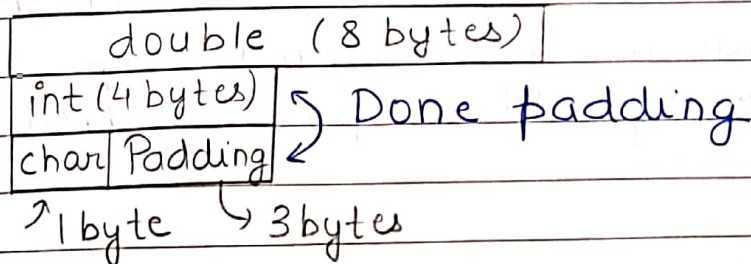 double (8 bytes)
int (4 bytes) Done padding
char Padding
1 byte 3 bytes